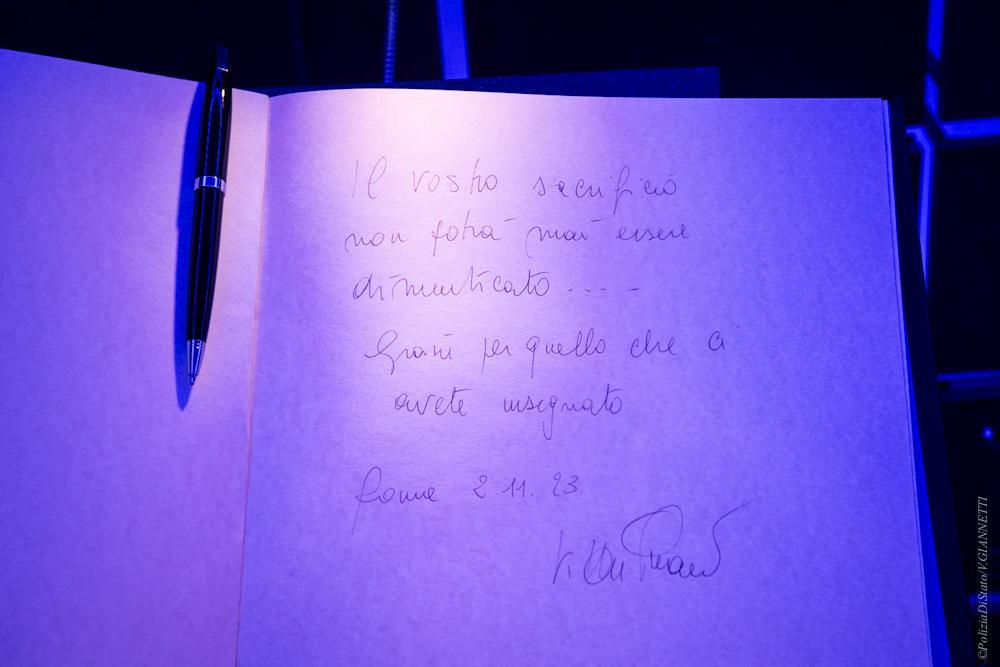 Il vostro sacrificio
non potrà mai essere
dimenticato ....
Grazie per quello che ci
avete insegnato
Roma 2.11.23
©PoliziaDiStato/V.GIANNETTI